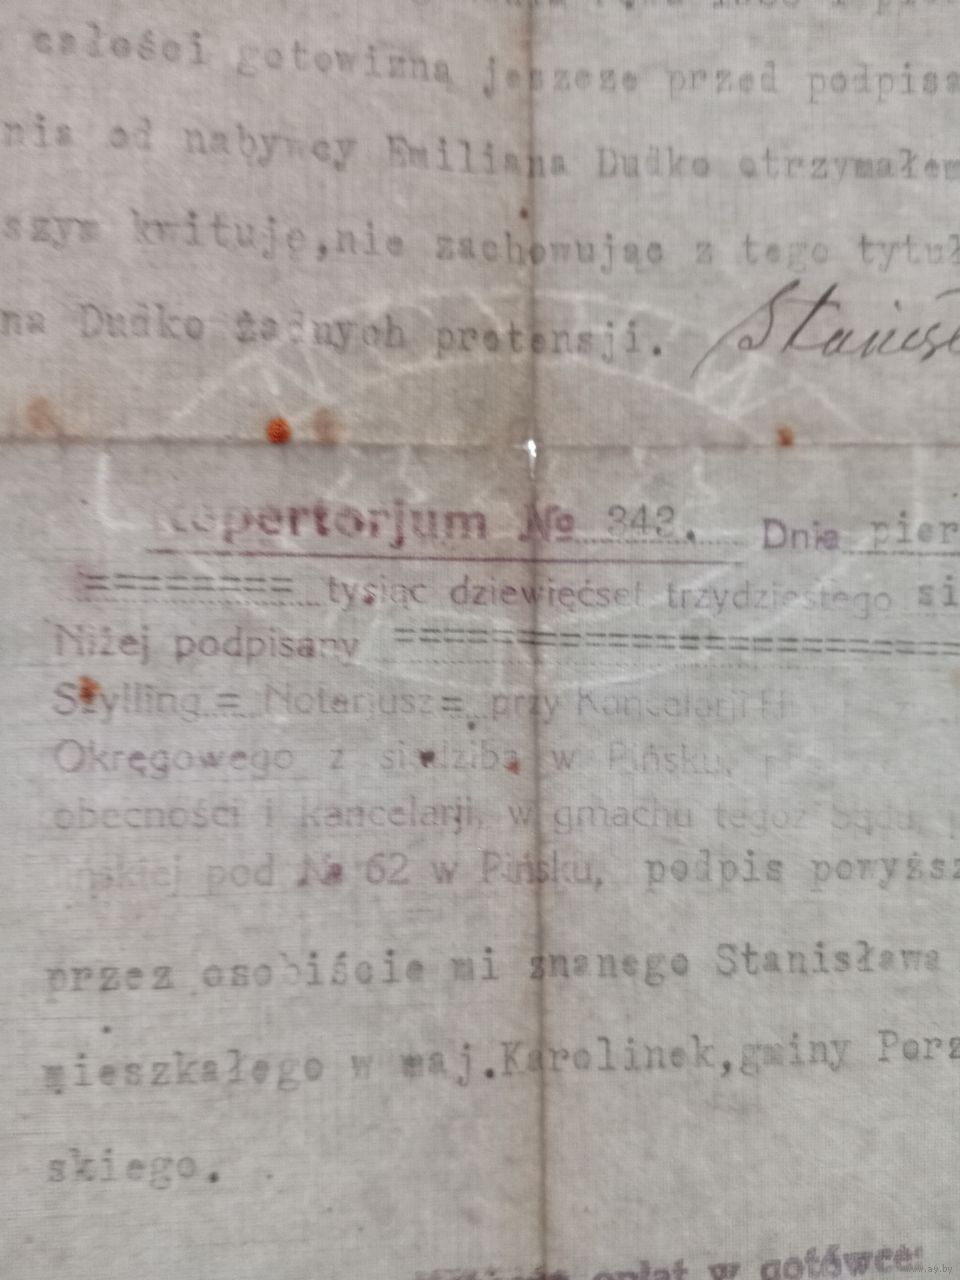 całości gotowizną jeszcze przed podpisa
nia od nabywcy Emiliana Dudko otrzymałem
szym kwituję,nie zachowując z tego tytuł
na Dudko żadnych pretensji. Stanisł
Repertorjum № 343. Dnia pier
======== tysiąc dziewięćset trzydziestego si
Niżej podpisany ========================
Szylling = Notarjusz=, przy Kancelarji H
Okręgowego z siedzibą w Pińsku,
obecności i kancelarji, w gmachu tegoż Sądu,
ińskiej pod № 62 w Pińsku, podpis powyższ
przez osobiście mi znanego Stanisława
mieszkałego w maj.Karolinek,gminy Porz
skiego.
opłat w gotówce:
www.ay.by